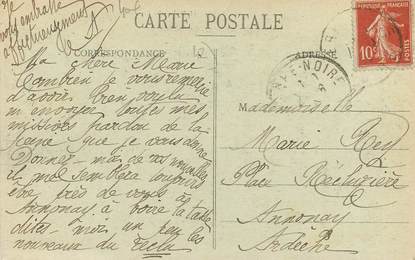 vous embrasse
affectueusement
CARTE POSTALE
CORRESPONDANCE
ADRESSE
REPUBLIQUE FRANÇAISE
10c
POSTES
NOIRE
Ma chère Marie
Combien je vous remercie
d'avoir bien voulu
m'envoyer toutes mes
missives pardon de la
peine que je vous donne
Donnez moi de vos nouvelles
il me semblera toujours
être près de vous à
Annonay, à boire la tasse
dites-moi un peu les
nouveaux du
Mademoiselle
Marie Rey
Place Réclusière
Annonay
Ardèche